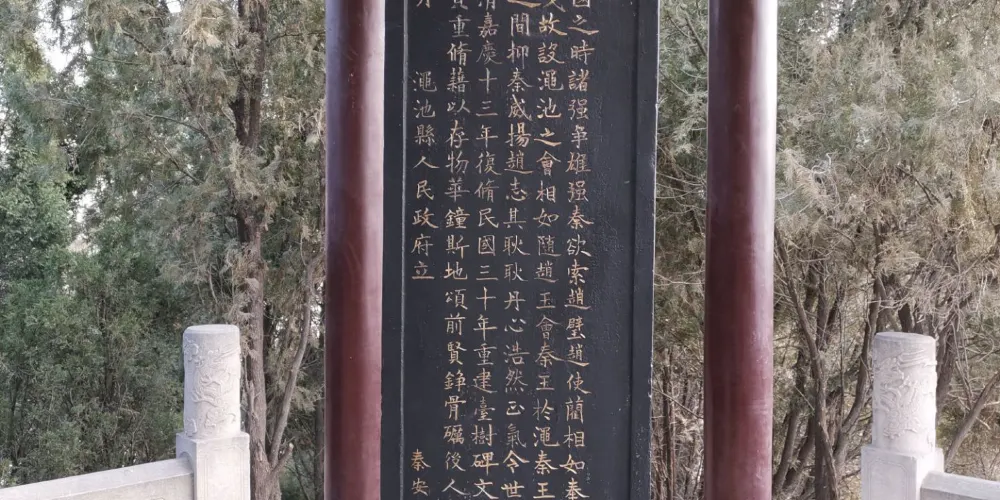 之時諸强爭雄强秦欲索趙璧趙使藺相如奉
故設澠池之會相如隨趙王會秦王於澠秦王
間抑秦威揚趙志其耿耿丹心浩然正氣令世
清嘉慶十三年復脩民國三十年重建臺樹碑文
重脩藉以存物華鐘斯地頌前賢錚骨礪後人
澠池縣人民政府立
秦安